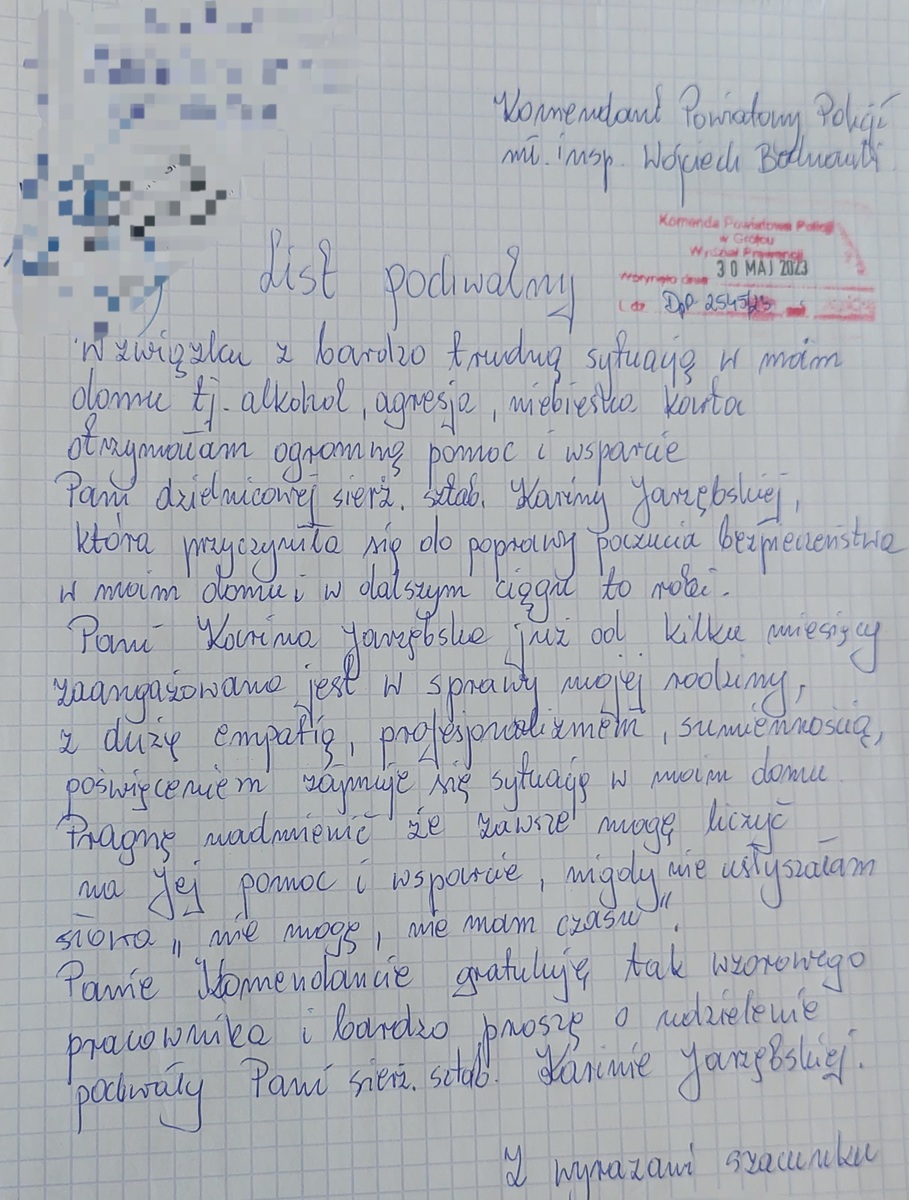 Komendant Powiatowy Policji
mł. insp. Wojciech Bednarski
Komenda Powiatowa Policji
w Grójcu
Wydział Prewencji
Wpłynęło dnia 30 MAJ 2023
L.dz. DpP 2545/23
List pochwalny
W związku z bardzo trudną sytuacją w moim
domu tj. alkohol, agresja, niebieska karta
otrzymałam ogromną pomoc i wsparcie
Pani dzielnicowej sierż. sztab. Kariny Jarzębskiej,
która przyczyniła się do poprawy poczucia bezpieczeństwa
w moim domu i w dalszym ciągu to robi.
Pani Karina Jarzębska już od kilku miesięcy
zaangażowana jest w sprawy mojej rodziny,
z dużą empatią, profesjonalizmem, sumiennością,
poświęceniem zajmuje się sytuacją w moim domu.
Pragnę nadmienić że zawsze mogę liczyć
na Jej pomoc i wsparcie, nigdy nie usłyszałam
słowa „ nie mogę, nie mam czasu".
Panie Komendancie gratuluję tak wzorowego
pracownika i bardzo proszę o udzielenie
pochwały Pani sierż. sztab. Karinie Jarzębskiej.
Z wyrazami szacunku